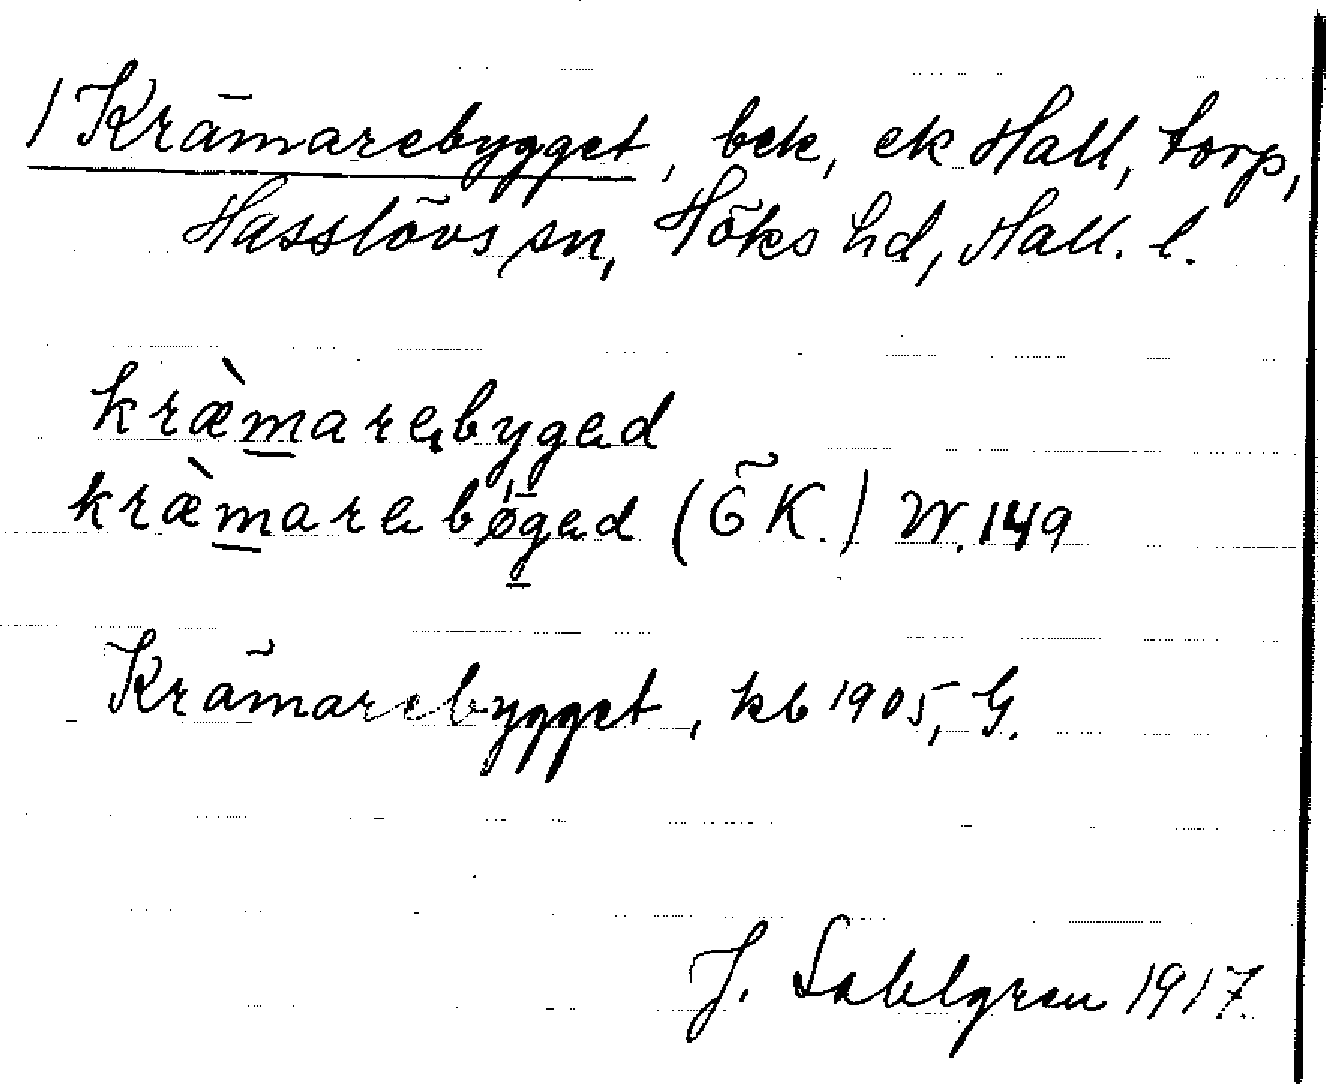 / Krämarebygget, bek, ek Hall, torp,
Hasslövs sn, Höks hd, Hall. l.
kræ̀marebyged
kræ̀marebøged (ÖK.) W. 149
Krämarebygget, kb 1905, G.
J. Sahlgren 1917